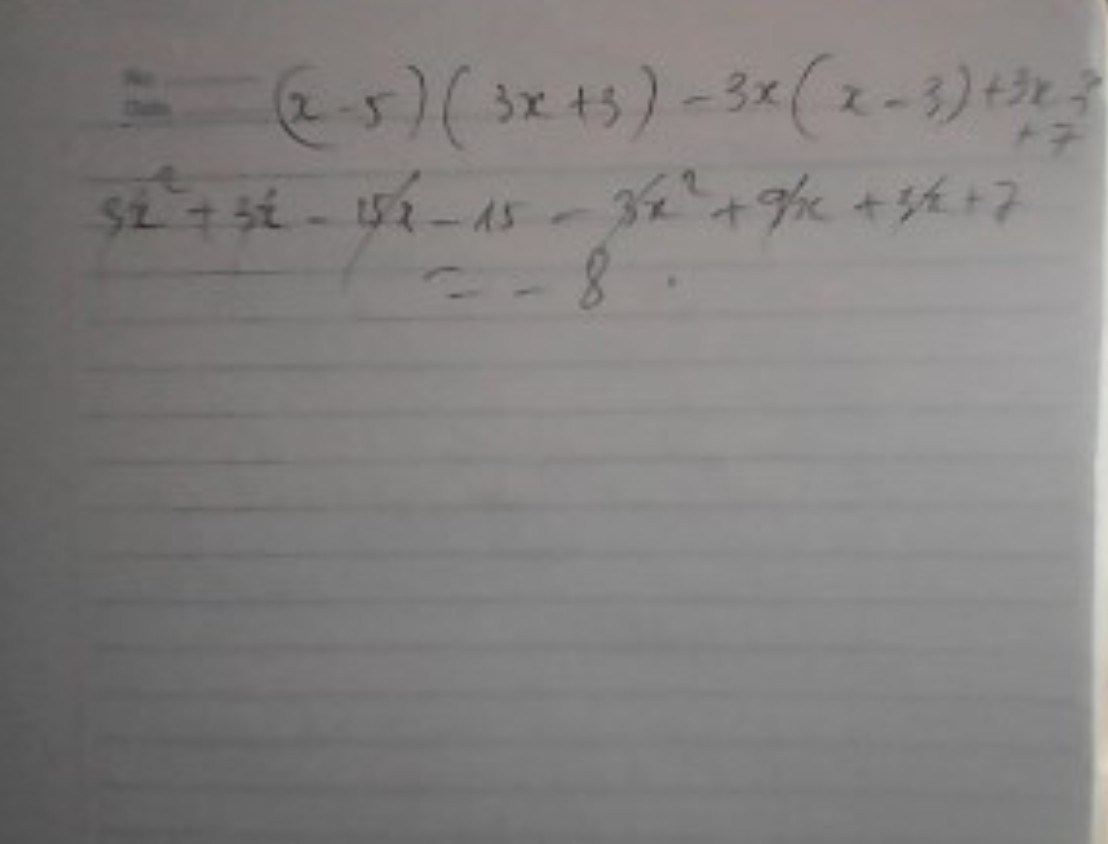 No.
Date
(x-5)(3x+3)-3x(x-3)+3x
+7
3x²+3x-15x-15-3x²+9x+3x+7
=-8.